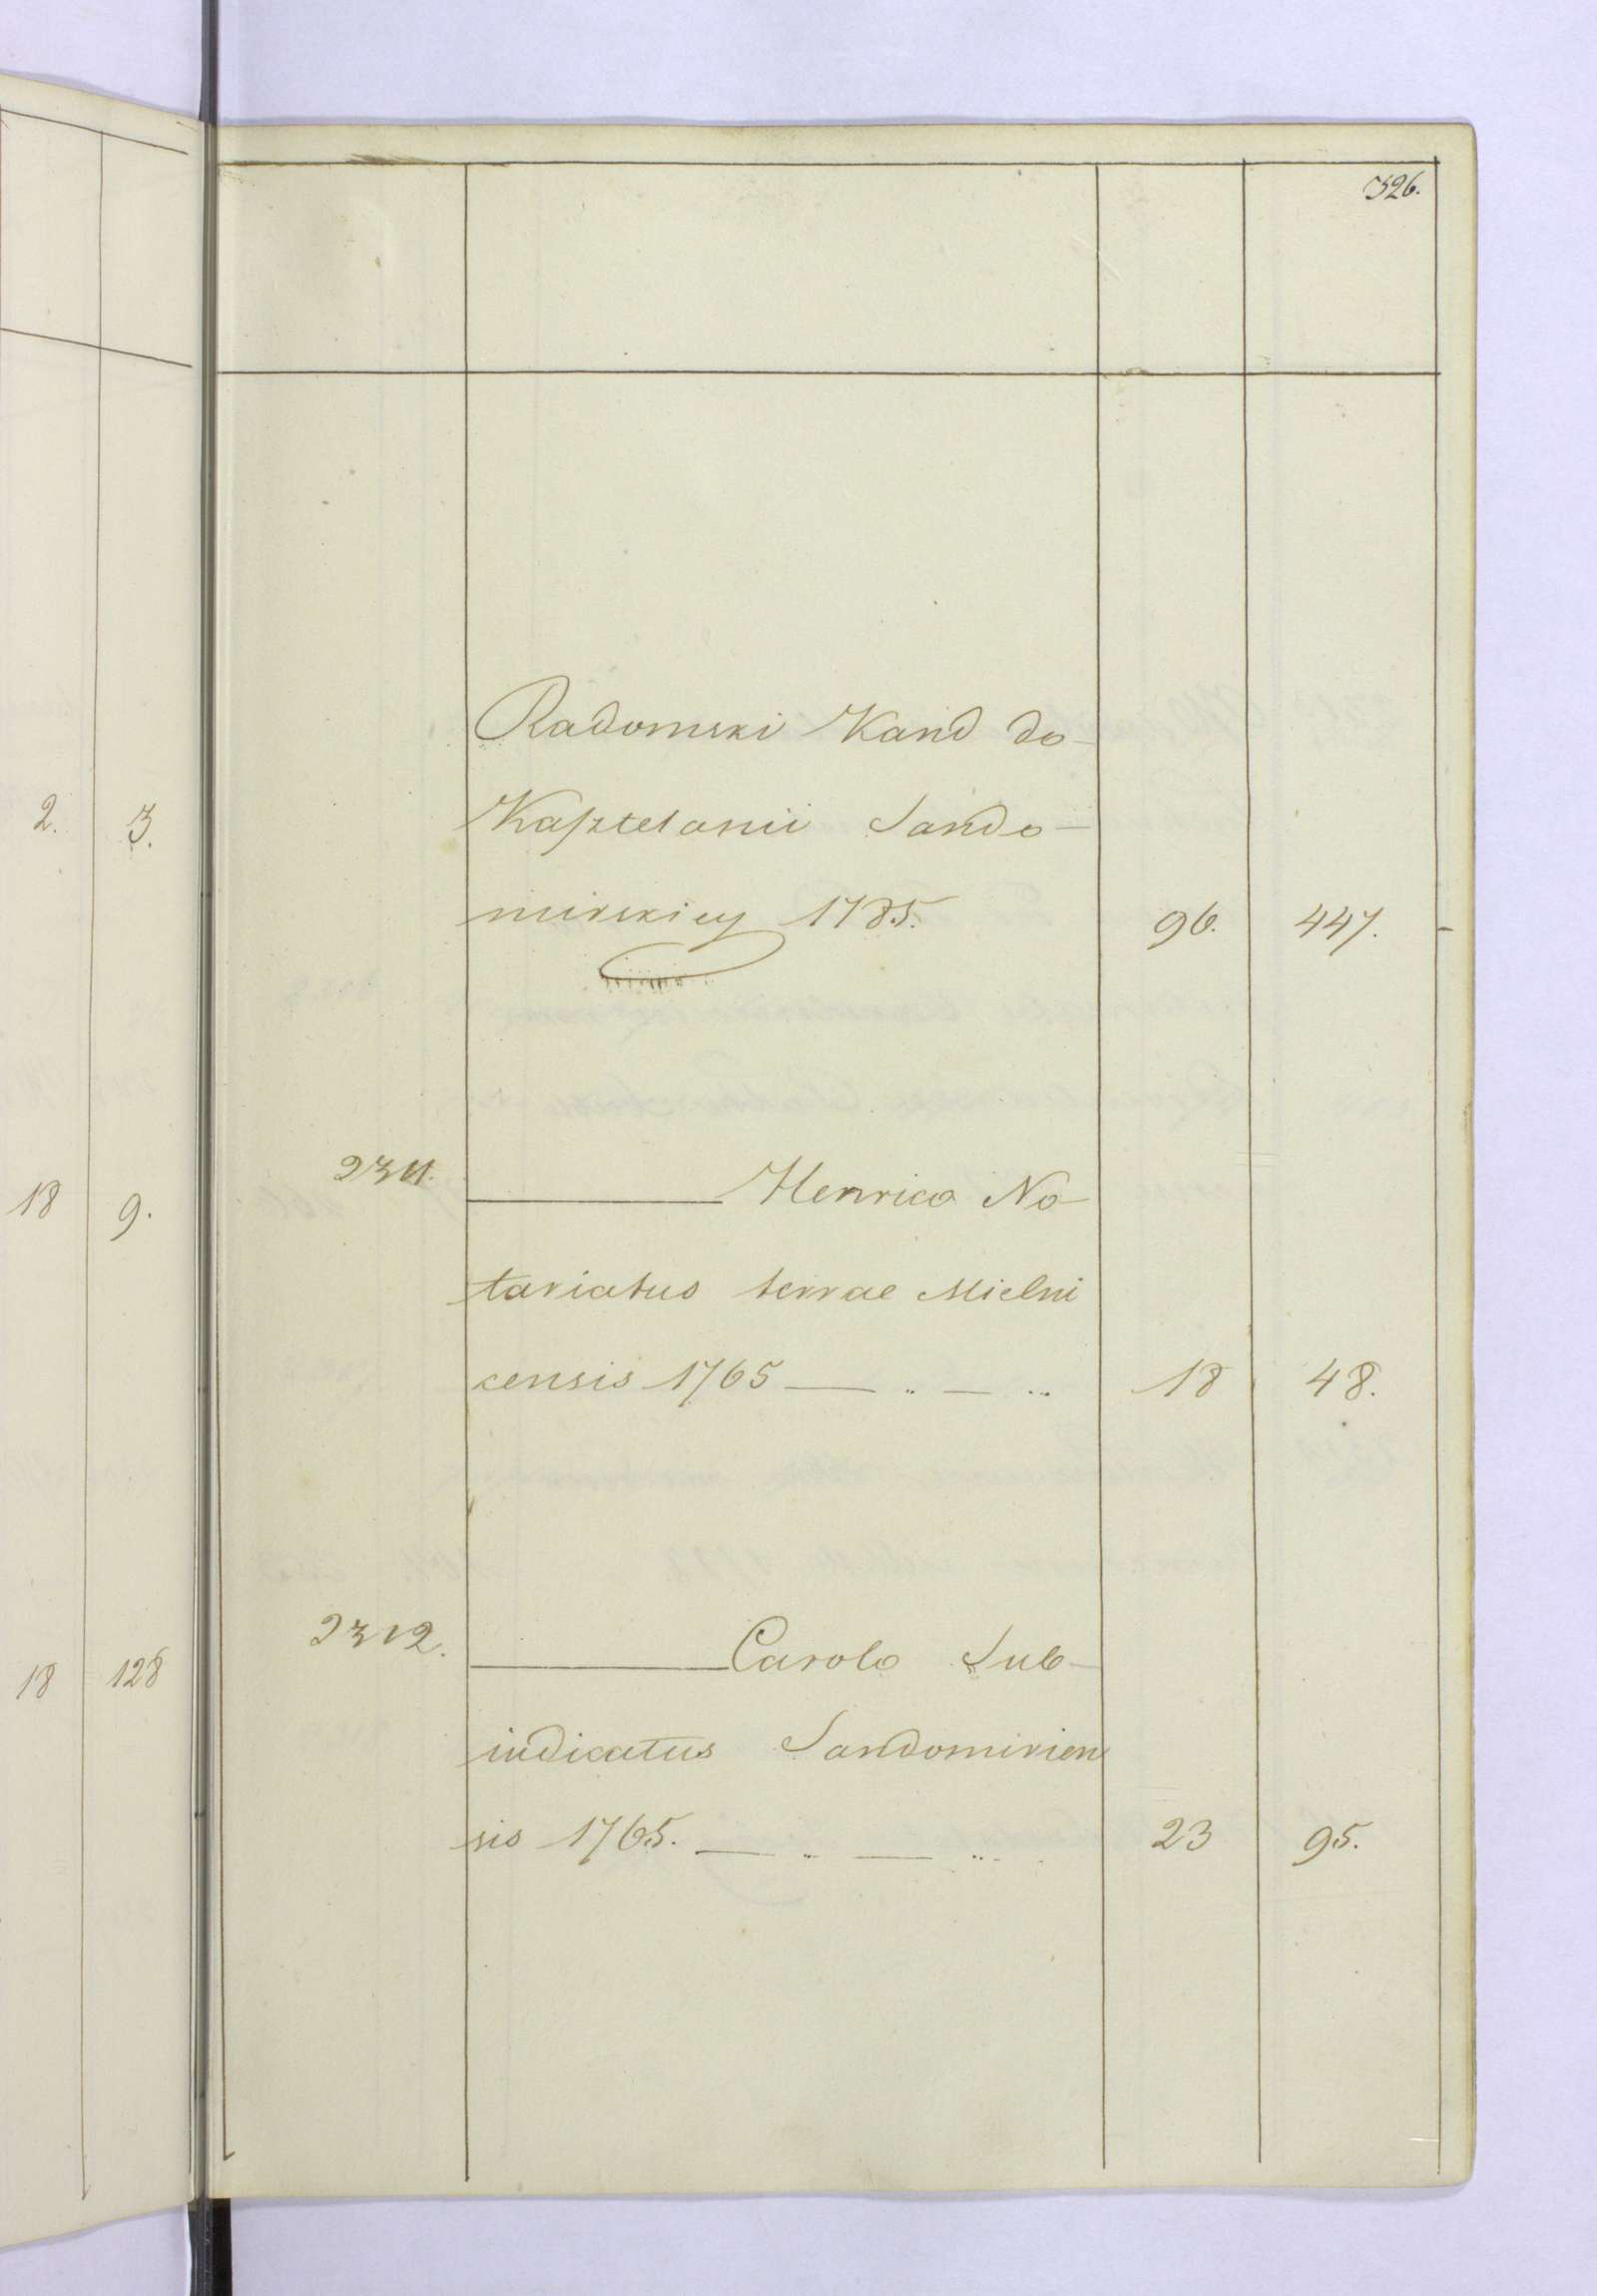 326.
Radomski Kand do
Kasztelanii Sando-
mirskiey 1785. 96. 447.
2311. ——— Henrico No-
tariatus terrae Mielni
censis 1765 — .. — .. 18 48.
2312. ——— Carolo Sub-
iudicatus Sandomirien
sis 1765. — .. — .. 23 95.
2. 3.
18 9.
18 128